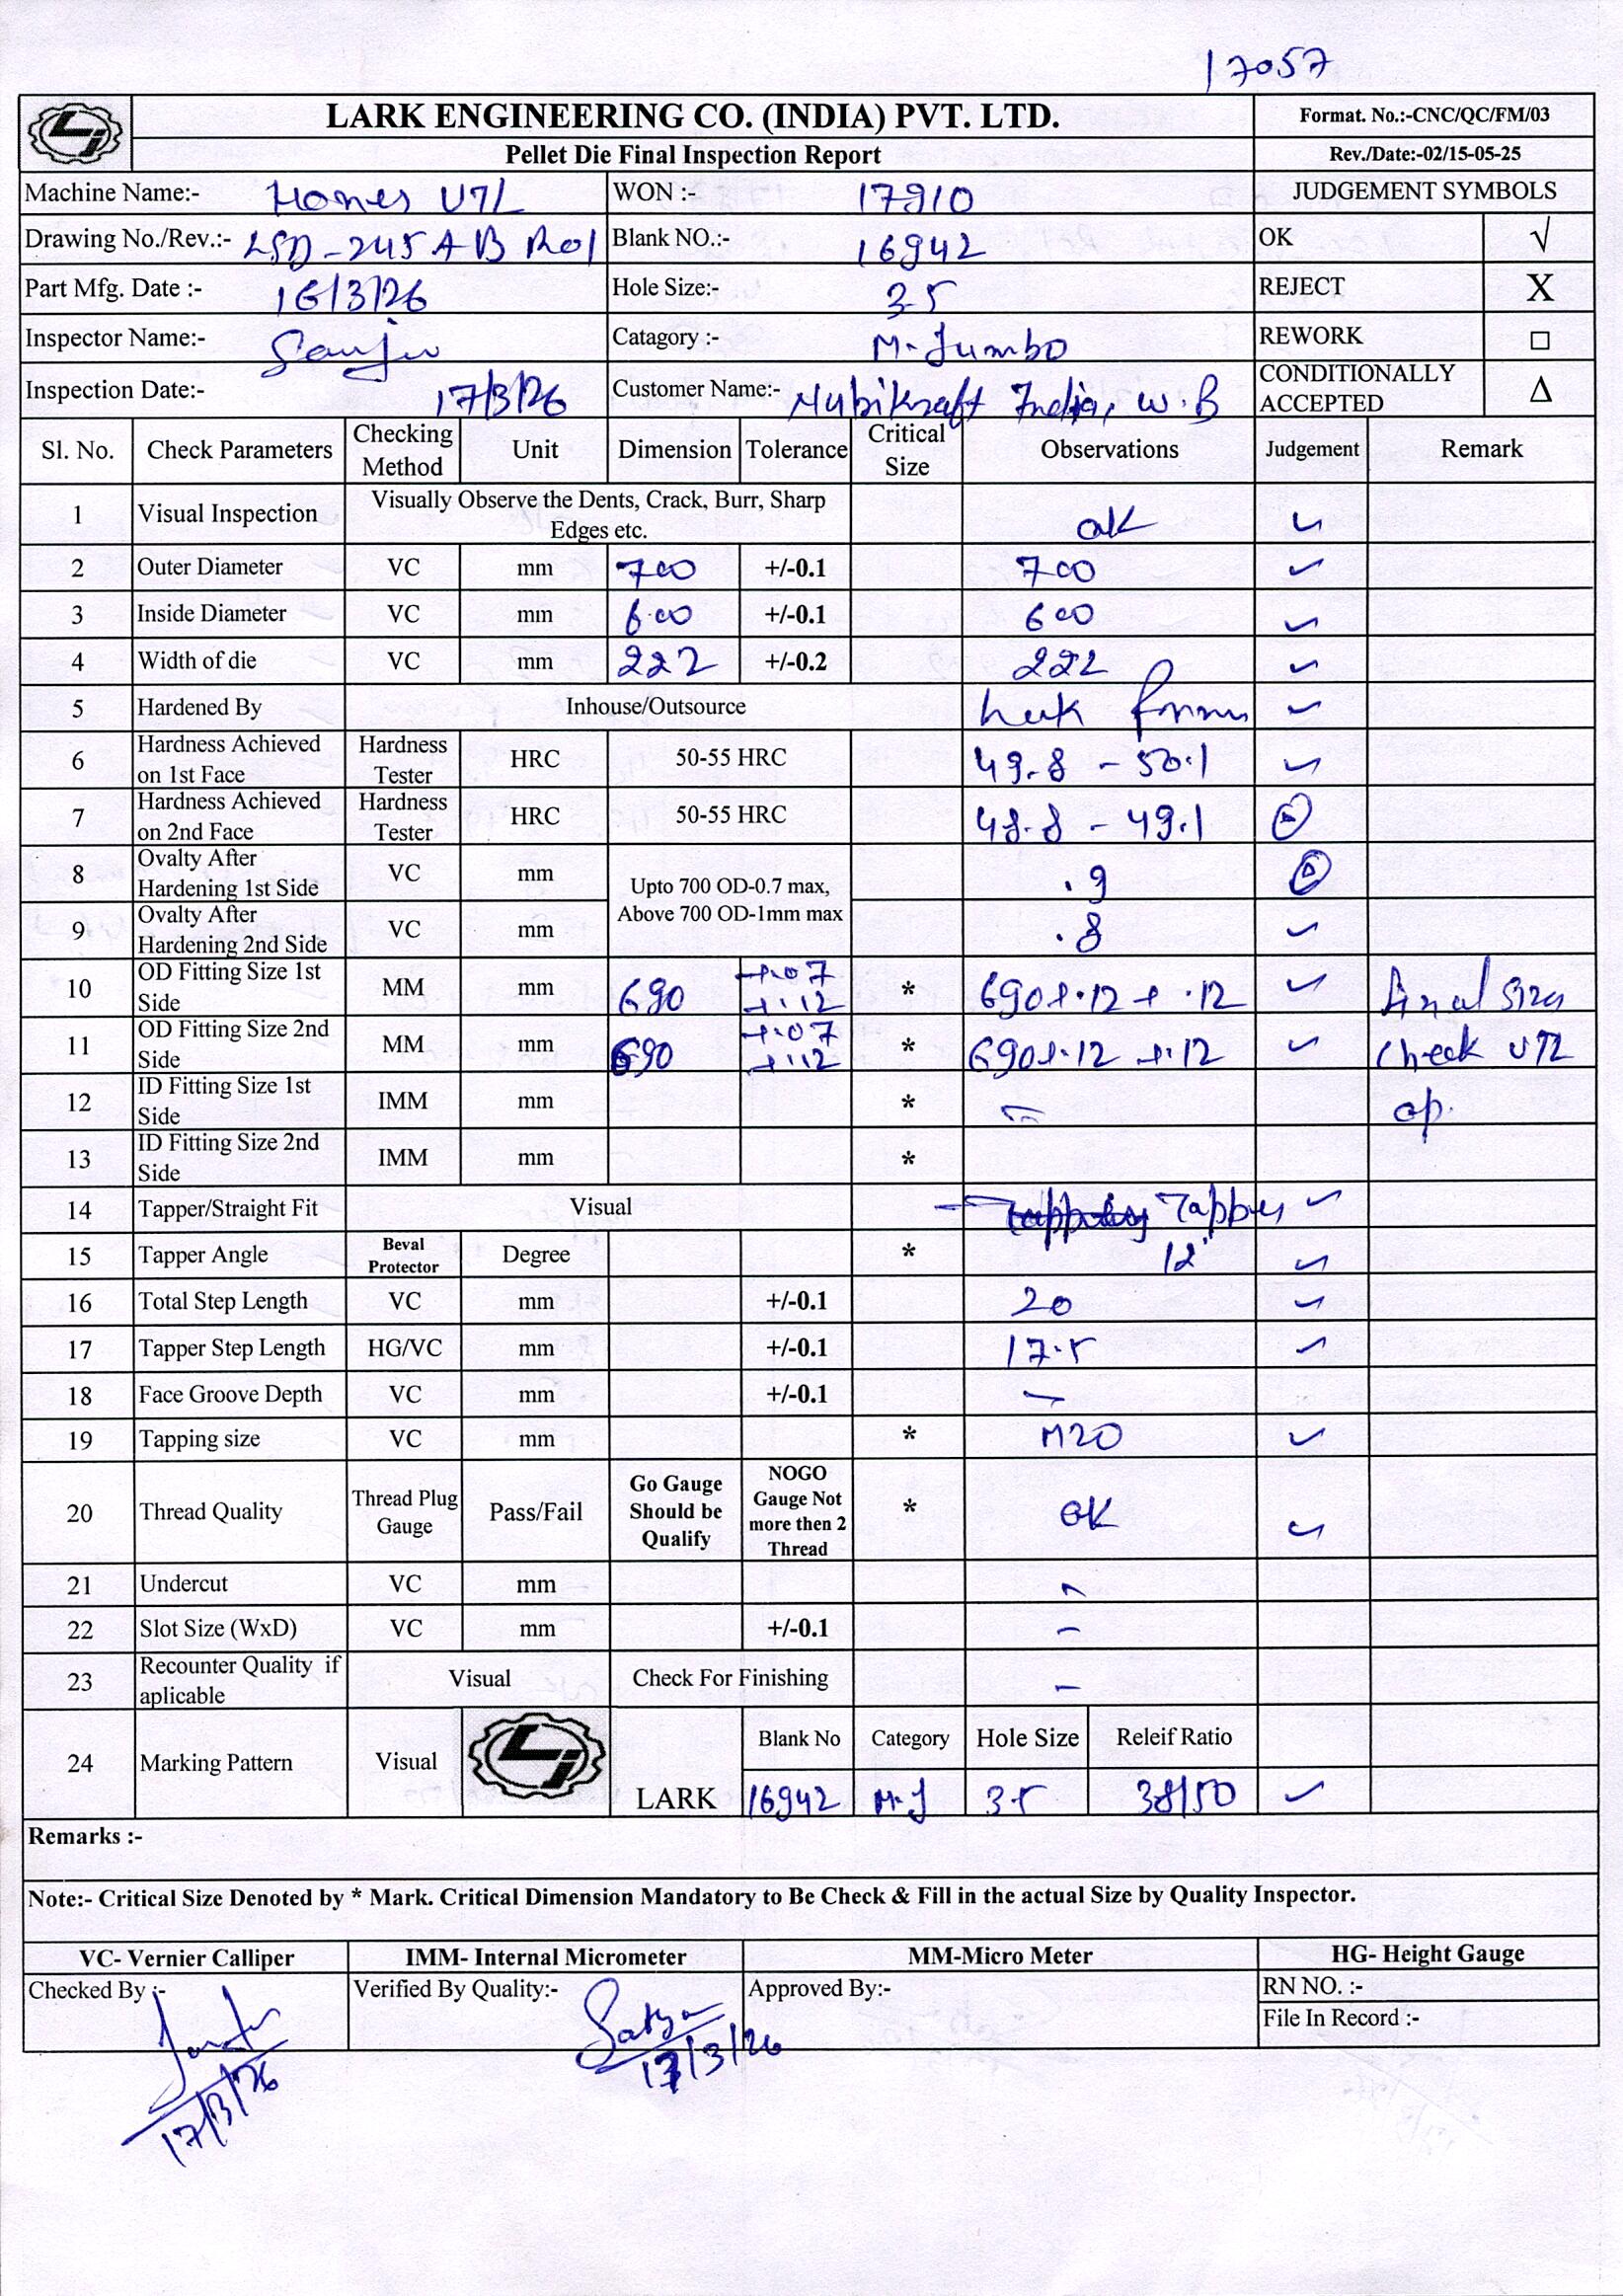 17057
LARK ENGINEERING CO. (INDIA) PVT. LTD. Format. No.:-CNC/QC/FM/03
Pellet Die Final Inspection Report Rev./Date:-02/15-05-25
Machine Name:- WON :- 17910 JUDGEMENT SYMBOLS
Drawing No./Rev.:- LSD-245 A B R01 Blank NO.:- 16942 OK √
Part Mfg. Date :- 16/3/26 Hole Size:- 3.5 REJECT X
Inspector Name:- Catagory :- M-Jumbo REWORK □
Inspection Date:- 17/3/26 Customer Name:- India, W.B CONDITIONALLY ACCEPTED Δ
Sl. No. Check Parameters Checking Method Unit Dimension Tolerance Critical Size Observations Judgement Remark
1 Visual Inspection Visually Observe the Dents, Crack, Burr, Sharp Edges etc. ok ✓
2 Outer Diameter VC mm 700 +/-0.1 700 ✓
3 Inside Diameter VC mm 600 +/-0.1 600 ✓
4 Width of die VC mm 222 +/-0.2 222 ✓
5 Hardened By Inhouse/Outsource ✓
6 Hardness Achieved on 1st Face Hardness Tester HRC 50-55 HRC 49.8 - 50.1 ✓
7 Hardness Achieved on 2nd Face Hardness Tester HRC 50-55 HRC 48.8 - 49.1
8 Ovalty After Hardening 1st Side VC mm Upto 700 OD-0.7 max, Above 700 OD-1mm max .9
9 Ovalty After Hardening 2nd Side VC mm .8 ✓
10 OD Fitting Size 1st Side MM mm 690 +.07 +.12 * 690+.12 + .12 ✓ final size
11 OD Fitting Size 2nd Side MM mm 690 +.07 +.12 * 690+.12 +.12 ✓ check
12 ID Fitting Size 1st Side IMM mm * - op.
13 ID Fitting Size 2nd Side IMM mm *
14 Tapper/Straight Fit Visual Tapper ✓
15 Tapper Angle Beval Protector Degree * 12° ✓
16 Total Step Length VC mm +/-0.1 20 ✓
17 Tapper Step Length HG/VC mm +/-0.1 17.5 ✓
18 Face Groove Depth VC mm +/-0.1 -
19 Tapping size VC mm * M20 ✓
20 Thread Quality Thread Plug Gauge Pass/Fail Go Gauge Should be Qualify NOGO Gauge Not more then 2 Thread * OK ✓
21 Undercut VC mm -
22 Slot Size (WxD) VC mm +/-0.1 -
23 Recounter Quality if aplicable Visual Check For Finishing -
24 Marking Pattern Visual LARK Blank No Category Hole Size Releif Ratio
16942 M.J 3.5 38/50 ✓
Remarks :-
Note:- Critical Size Denoted by * Mark. Critical Dimension Mandatory to Be Check & Fill in the actual Size by Quality Inspector.
VC- Vernier Calliper IMM- Internal Micrometer MM-Micro Meter HG- Height Gauge
Checked By :- Verified By Quality:- Satya Approved By:- RN NO. :-
File In Record :-
17/3/26 17/3/26